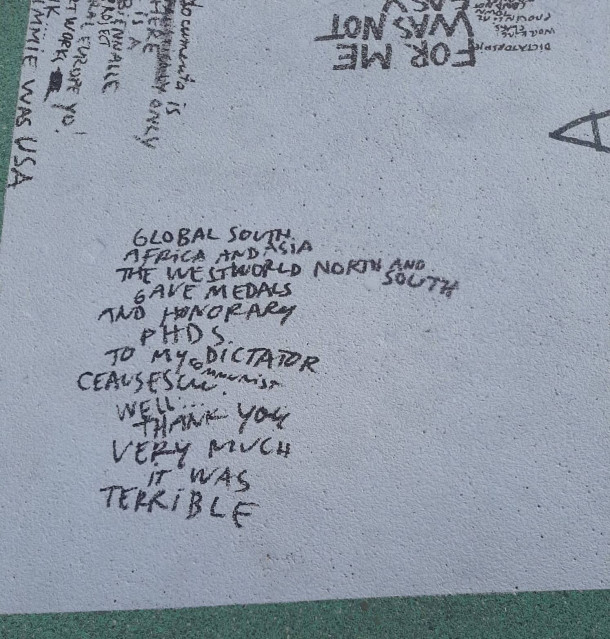 GLOBAL SOUTH
AFRICA AND ASIA
THE WESTWORLD NORTH AND SOUTH
GAVE MEDALS
AND HONORARY
PHDS
TO MY COMMUNIST DICTATOR
CEAUSESCU
WELL...
THANK YOU
VERY MUCH
iT WAS
TERRiBLE
FOR ME
WAS NOT
EASY
DICTATORSHIP
documenta is
ONLY
HERE
IS A
BIENNALLE
PROJECT
EUROPE YO!
NETWORK
WAS USA
A